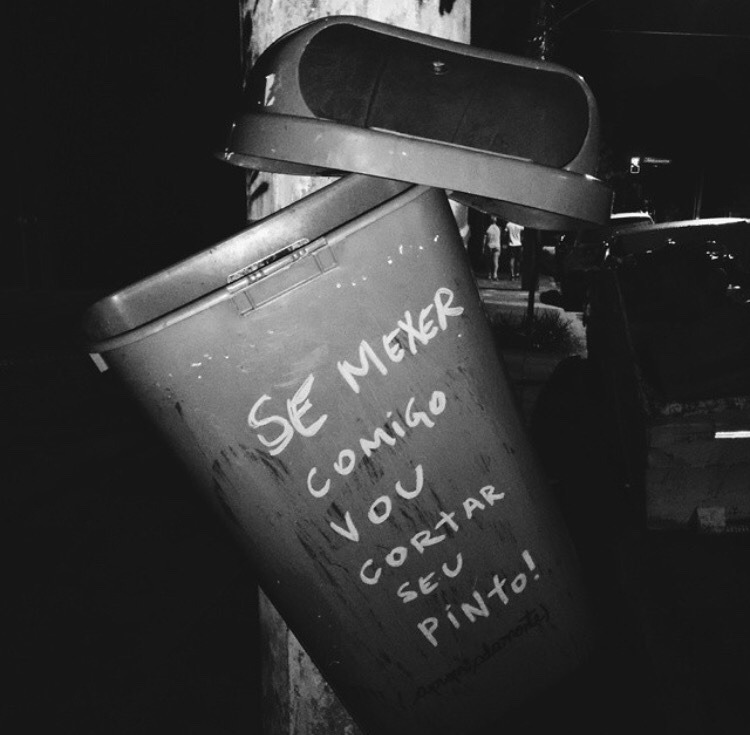 SE MEXER
COMIGO
VOU
CORTAR
SEU
PiNto!